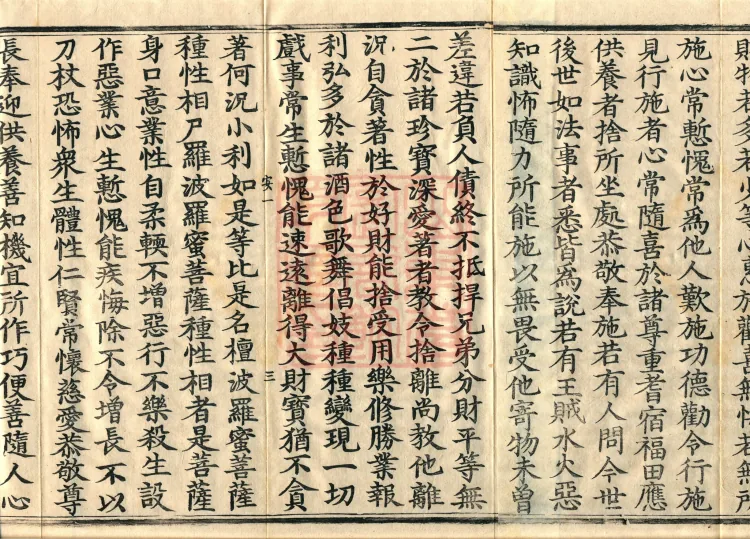 物若多若少等心惠施歡喜無悋若無所
施心常慙愧常爲他人歎施功德勸令行施
見行施者心常隨喜於諸尊重耆宿福田應
供養者捨所坐處恭敬奉施若有人問今世
後世如法事者悉皆爲說若有王賊水火惡
知識怖隨力所能施以無畏受他寄物未曾
差違若負人債終不抵捍兄弟分財平等無
二於諸珍寶深愛著者教令捨離尚教他離
況自貪著性於好財能捨受用樂修勝業報
利弘多於諸酒色歌舞倡妓種種變現一切
戲事常生慙愧能速遠離得大財寶猶不貪
一 三
著何況小利如是等比是名檀波羅蜜菩薩
種性相尸羅波羅蜜菩薩種性相者是菩薩
身口意業性自柔輭不增惡行不樂殺生設
作惡業心生慙愧能疾悔除不令增長不以
刀杖恐怖衆生體性仁賢常懷慈愛恭敬尊
長奉迎供養善知機宜所作巧便善隨人心